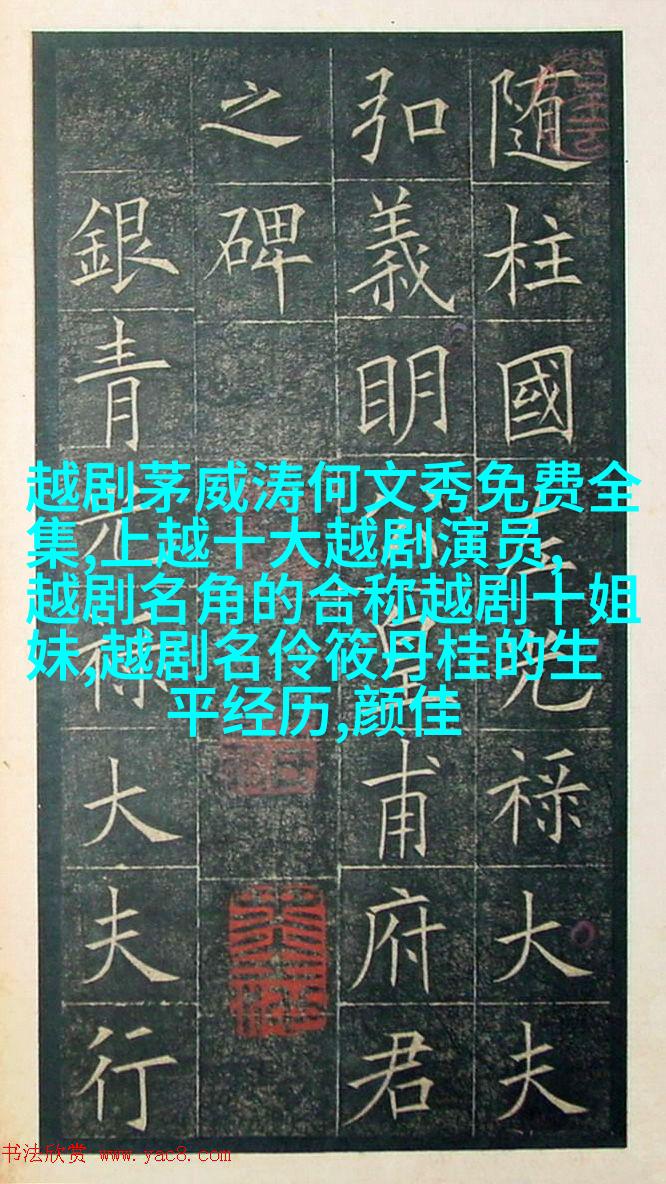 随柱國左光禄大夫
弘義明公皇甫府君
之碑
銀青光禄大夫行
越剧茅威涛何文秀免费全
集,上越十大越剧演员,
越剧名角的合称越剧十姐
妹,越剧名伶筱丹桂的生
平经历,颜佳
书法欣赏 www.yac8.com